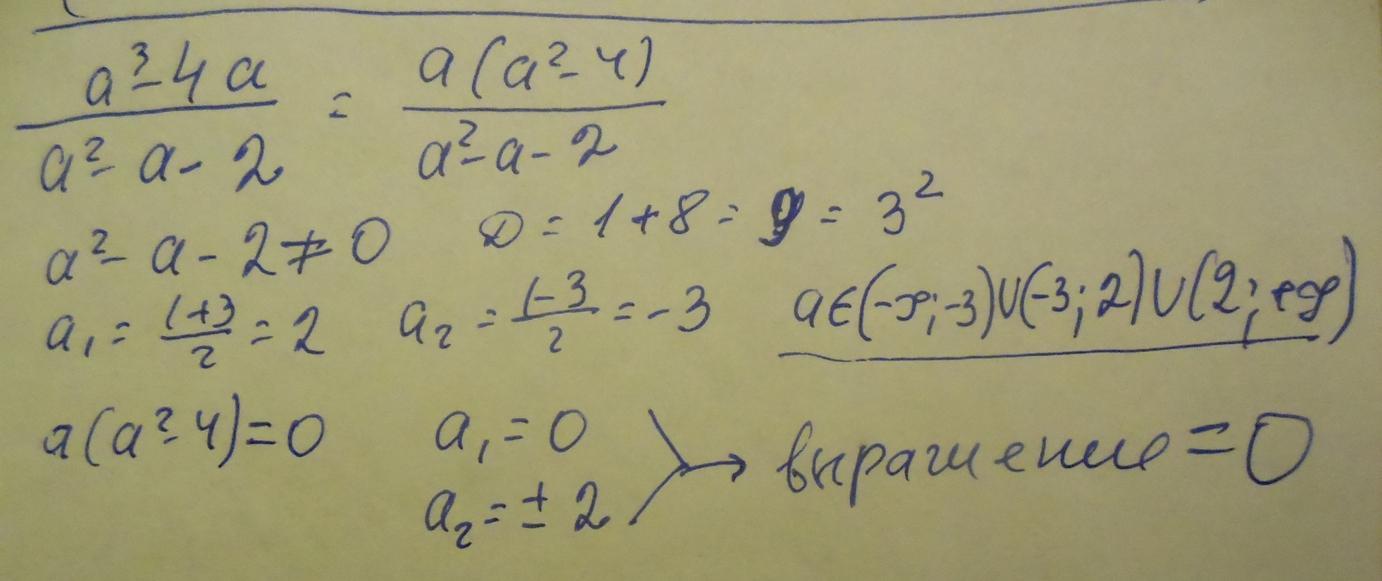 a³-4a / a²-a-2 = a(a²-4) / a²-a-2
a²-a-2≠0 D=1+8=9=3²
a₁=(1+3)/2=2 a₂=(1-3)/2=-3 a∈(-∞;-3)∪(-3;2)∪(2;+∞)
a(a²-4)=0 a₁=0
a₂=±2 → выражение=0